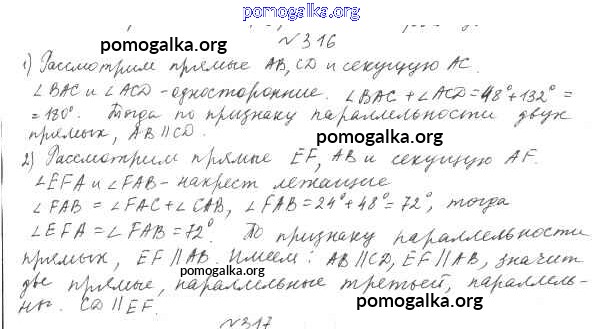 pomogalka.org
№316
pomogalka.org
1) Рассмотрим прямые AB, CD и секущую AC.
∠BAC и ∠ACD - односторонние. ∠BAC + ∠ACD = 48° + 132° =
= 180°. Тогда по признаку параллельности двух
прямых, AB ∥ CD.
pomogalka.org
2) Рассмотрим прямые EF, AB и секущую AF.
∠EFA и ∠FAB - накрест лежащие
∠FAB = ∠FAC + ∠CAB, ∠FAB = 24° + 48° = 72°, тогда
∠EFA = ∠FAB = 72°. По признаку параллельности
прямых, EF ∥ AB. Имеем: AB ∥ CD, EF ∥ AB, значит
pomogalka.org
две прямые, параллельные третьей, параллель-
ны. CD ∥ EF.
pomogalka.org
№317